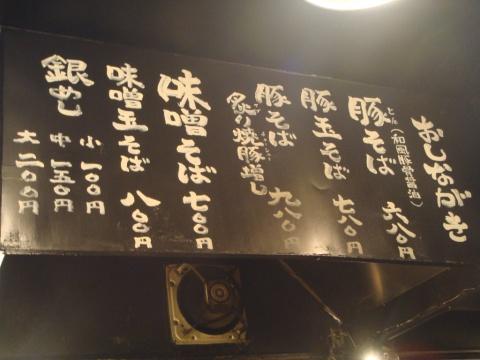 おしながき
豚そば 六八〇円
とん
(和風豚骨醤油)
豚玉そば 七八〇円
豚そば 九八〇円
炙り焼豚増し
味噌そば 七〇〇円
味噌玉そば 八〇〇円
銀めし
小 一〇〇円
中 一五〇円
大 二〇〇円